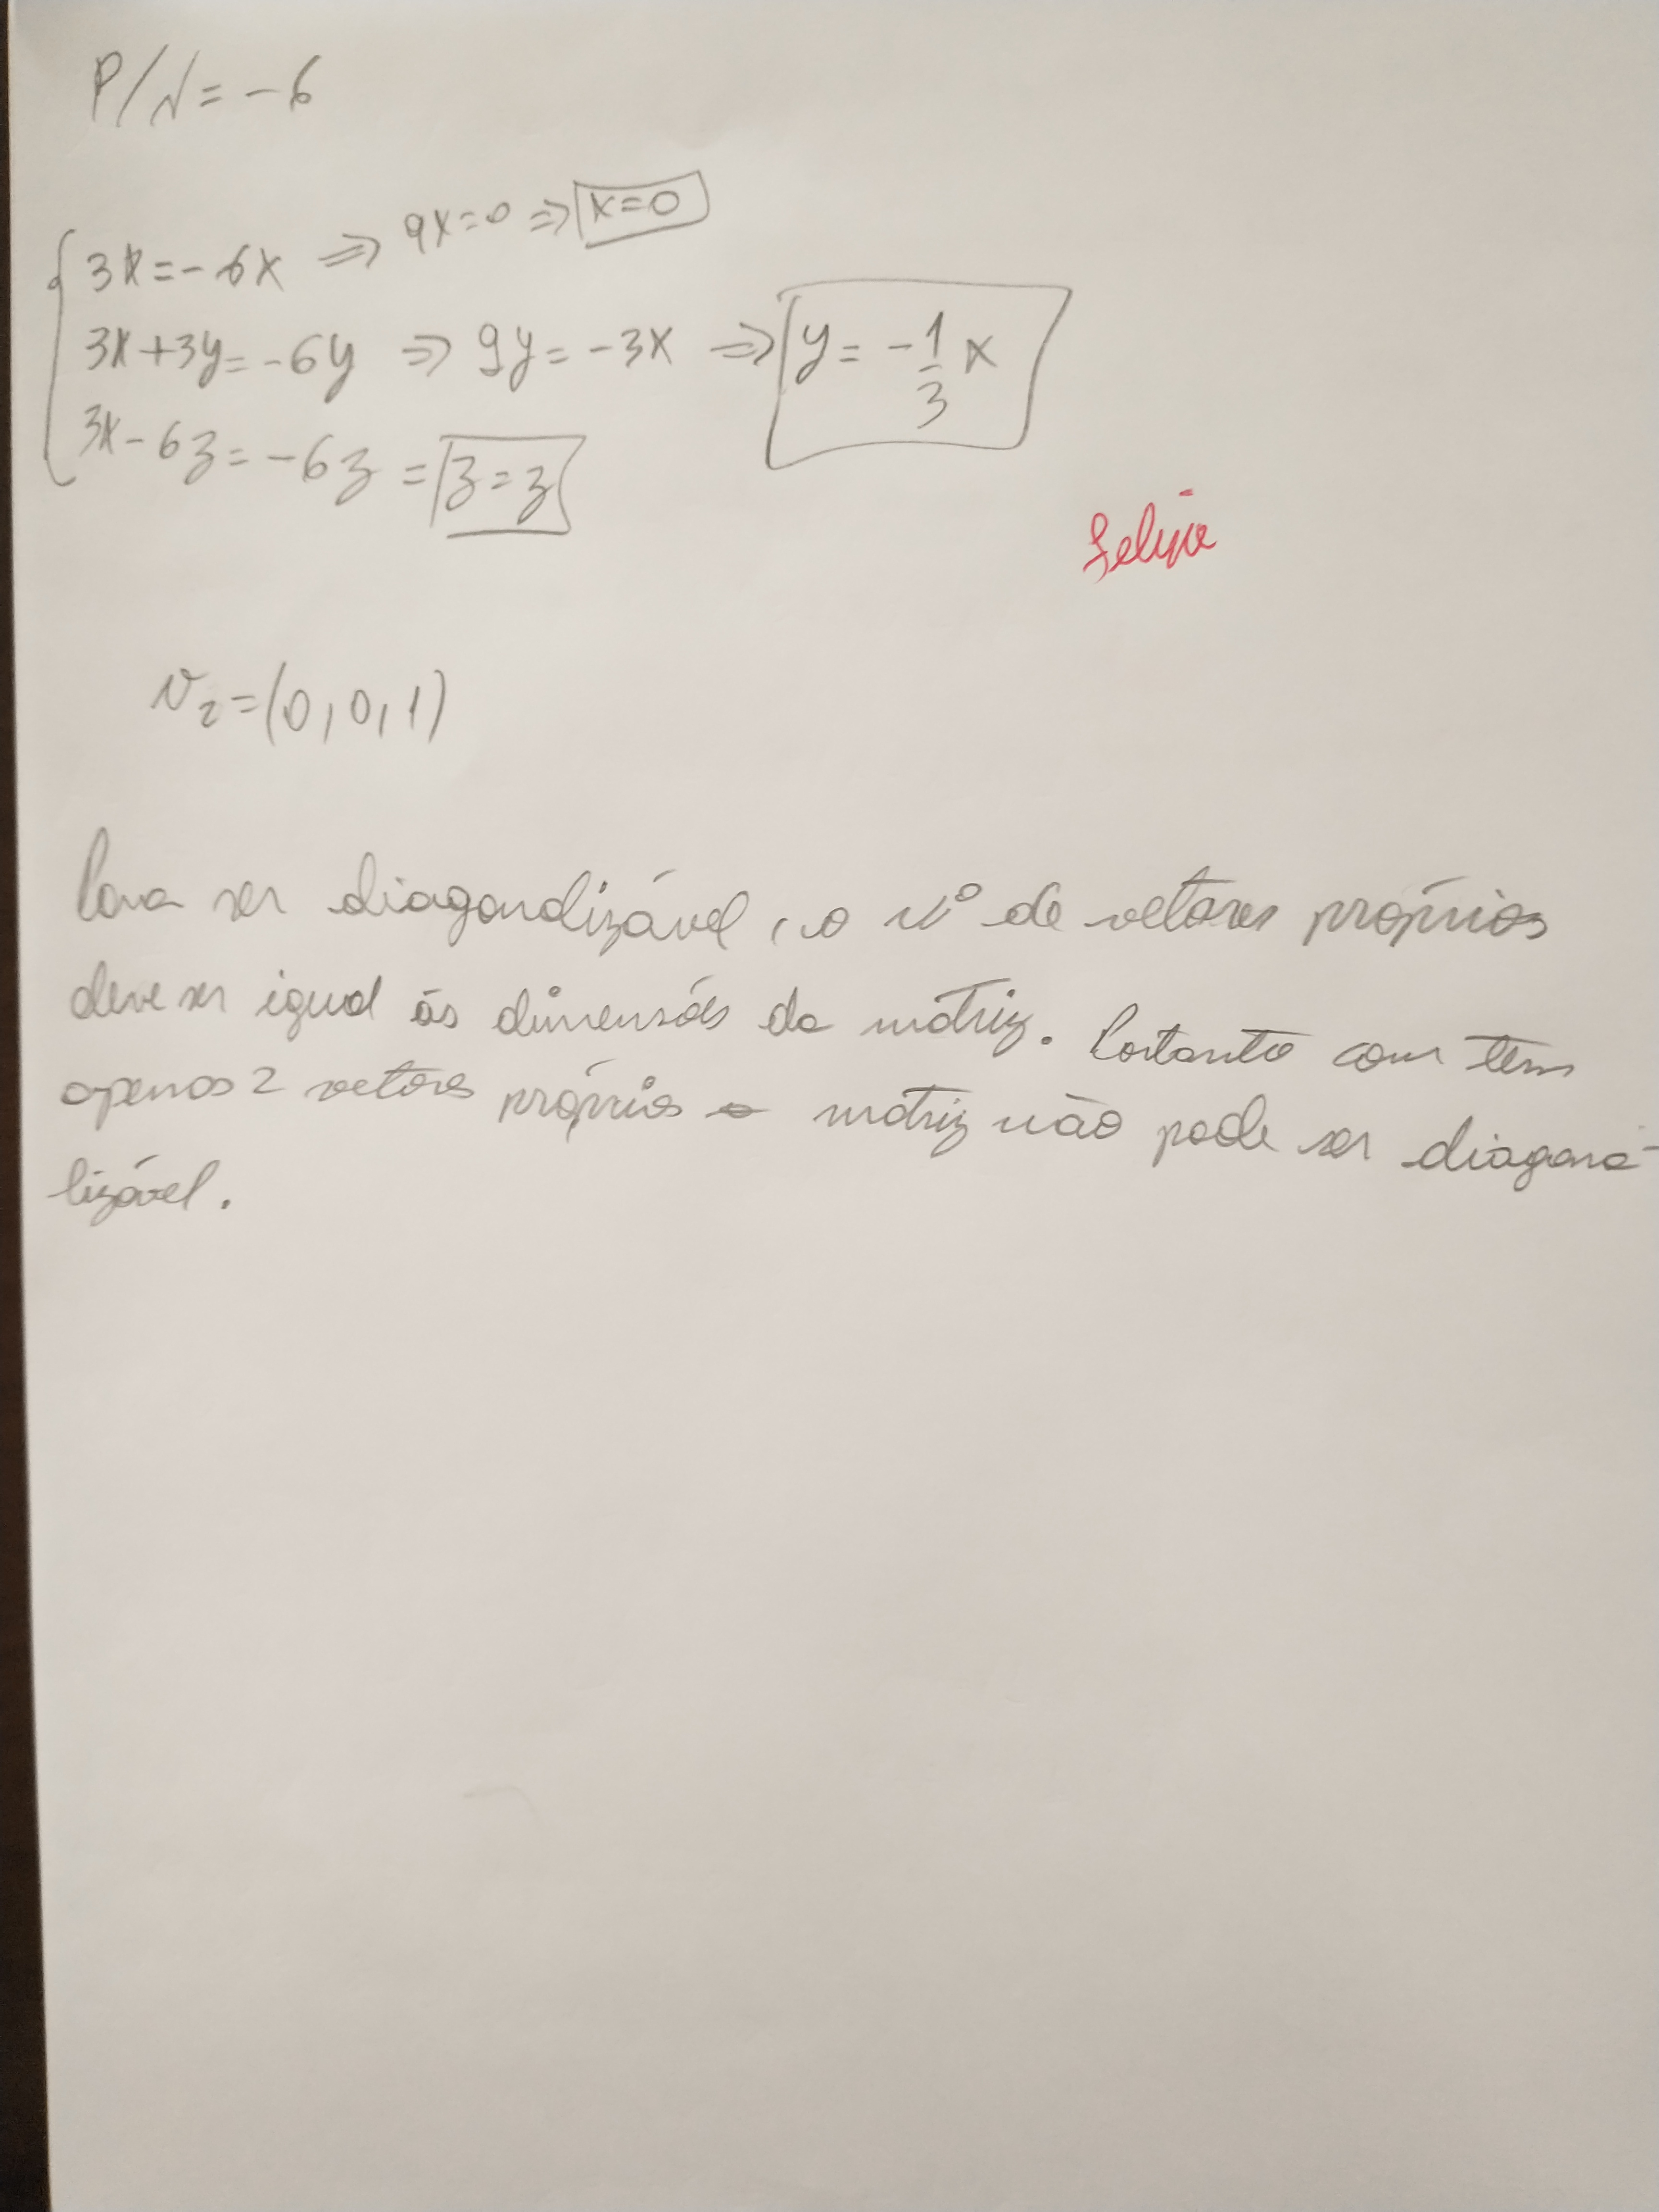 P/λ = -6
3x = -6x ⇒ 9x = 0 ⇒ x = 0
3x + 3y = -6y ⇒ 9y = -3x ⇒ y = -1/3 x
3x - 6z = -6z = z = z
Felipe
v2 = (0, 0, 1)
Para ser diagonalizável, o nº de vetores próprios
deve ser igual às dimensões da matriz. Portanto com tem
apenas 2 vetores próprios a matriz não pode ser diagona-
lizável.